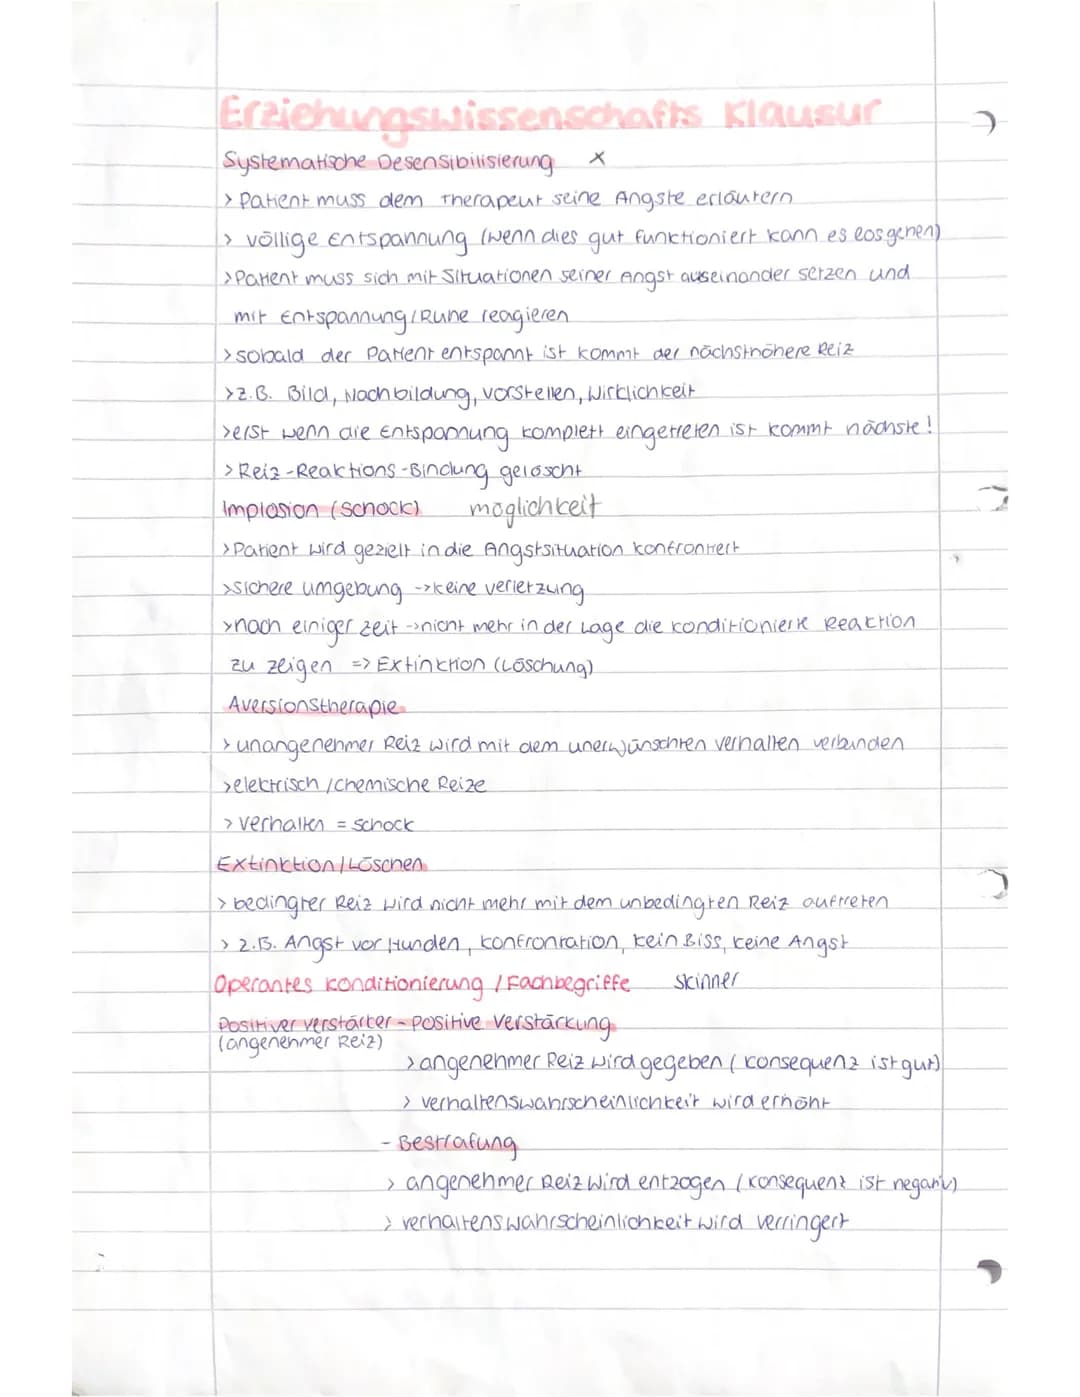 Erziehungswissenschafts Klausur
Systematische Desensibilisierung x
> Patient muss dem Therapeut seine Ängste erläutern
> völlige Entspannung (wenn dies gut funktioniert kann es losgehen)
> Patient muss sich mit Situationen seiner Angst auseinander setzen und
mit Entspannung/Ruhe reagieren
> sobald der Patient entspannt ist kommt der nächsthöhere Reiz
> z.B. Bild, Nachbildung, vorstellen, Wirklichkeit
> erst wenn die Entspannung komplett eingetreten ist kommt nächste!
> Reiz-Reaktions-Bindung gelöscht
Implosion (Schock) möglichkeit
> Patient wird gezielt in die Angstsituation konfrontiert
> sichere umgebung -> keine verletzung
> nach einiger zeit -> nicht mehr in der Lage die konditionierte Reaktion
zu zeigen => Extinktion (Löschung)
Aversionstherapie
> unangenehmer Reiz wird mit dem unerwünschten verhalten verbunden
> elektrisch/chemische Reize
> verhalten = schock
Extinktion/Löschen
> bedingter Reiz wird nicht mehr mit dem unbedingten Reiz auftreten
> z.B. Angst vor Hunden, konfrontation, kein Biss, keine Angst
Operantes konditionierung / Fachbegriffe skinner
Positiver verstärker - positive Verstärkung
(angenehmer Reiz)
> angenehmer Reiz wird gegeben (konsequenz ist gut)
> verhaltenswahrscheinlichkeit wird erhöht
- Bestrafung
> angenehmer Reiz wird entzogen (konsequenz ist negativ)
> verhaltenswahrscheinlichkeit wird verringert